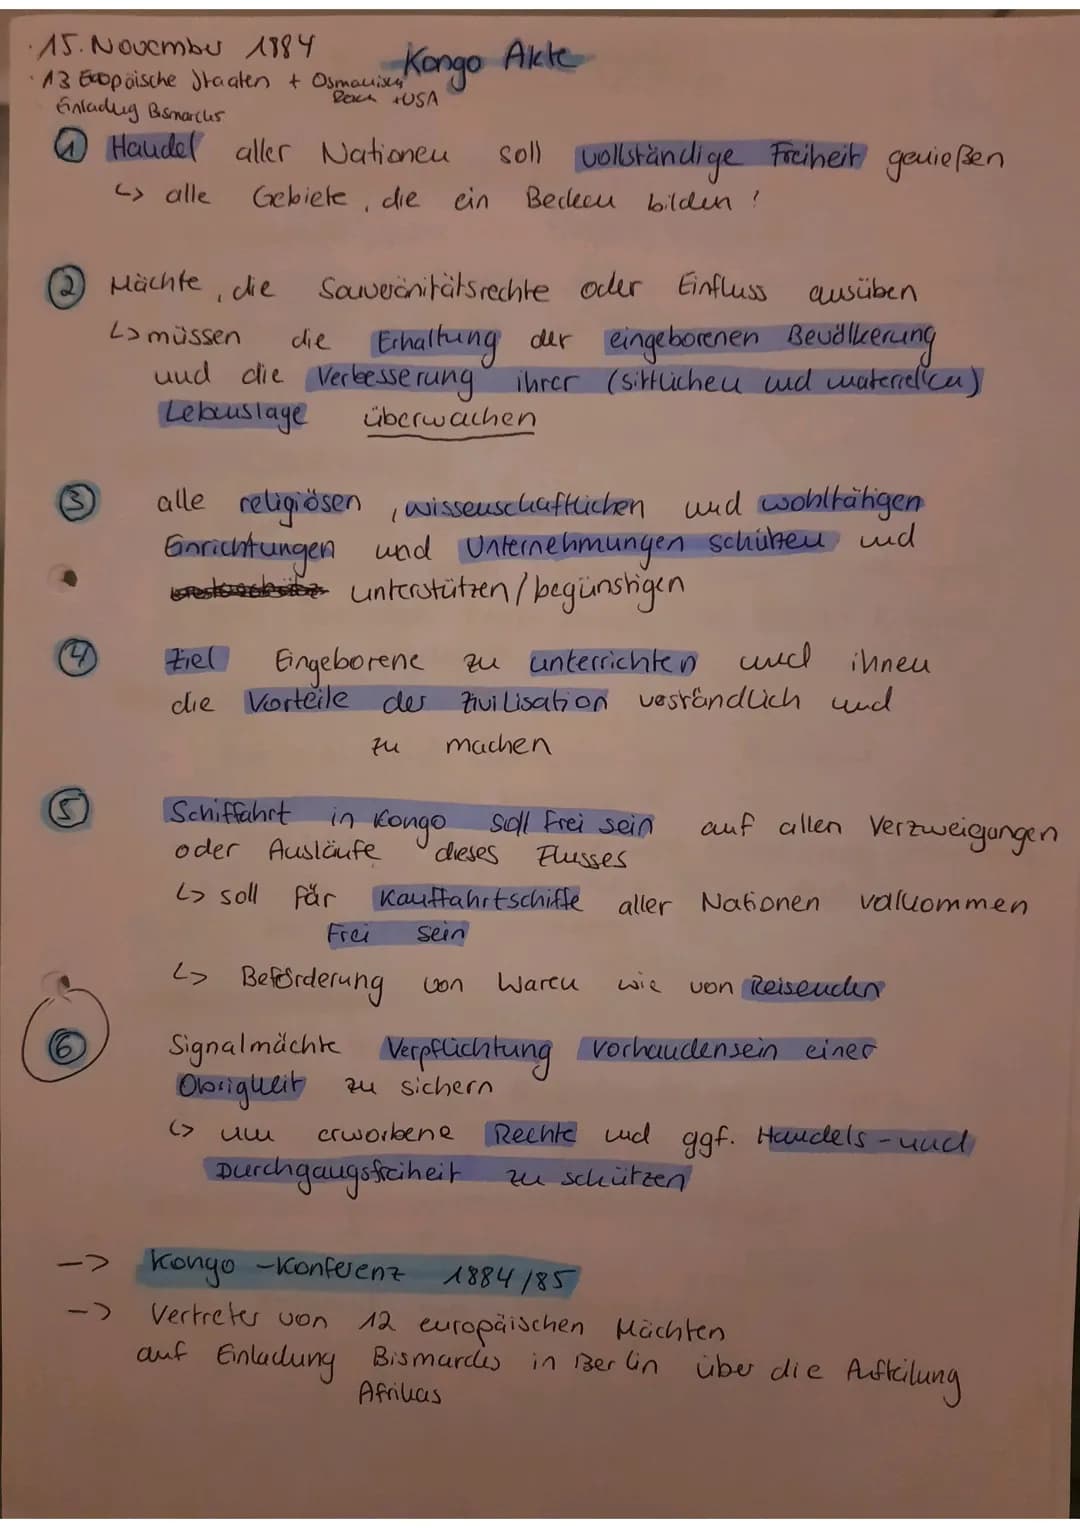 · 15. November 1884
Kongo Akte
· 13 Euopäische Staaten + Osmanisches
Reich + USA
Einladug Bismarcks
① Handel aller Nationen soll vollständige Freiheit genießen
↳ alle Gebiete, die ein Becken bilden !
② Mächte, die Souveränitätsrechte oder Einfluss ausüben
↳ müssen die Erhaltung der eingeborenen Bevölkerung
und die Verbesserung ihrer (sittlichen und materiellen)
Lebenslage überwachen
③ alle religiösen, wissenschaftlichen und wohltätigen
Einrichtungen und Unternehmungen schützen und
unterstützen / begünstigen
④ Ziel Eingeborene zu unterrichten und ihnen
die Vorteile der Zivilisation veständlich und
zu machen
⑤ Schiffahrt in Kongo soll frei sein auf allen Verzweigungen
oder Ausläufe dieses Flusses
↳ soll für Kauffahrtschiffe aller Nationen vollkommen
Frei sein
↳ Beförderung von Waren wie von Reisenden
⑥ Signalmächte Verpflichtung Vorhandensein einer
Obrigkeit zu sichern
↳ um erworbene Rechte und ggf. Handels- und
Durchgangsfreiheit zu schützen
-> Kongo - Konferenz 1884/85
-> Vertreter von 12 europäischen Mächten
auf Einladung Bismarcks in Berlin über die Aufteilung
Afrikas